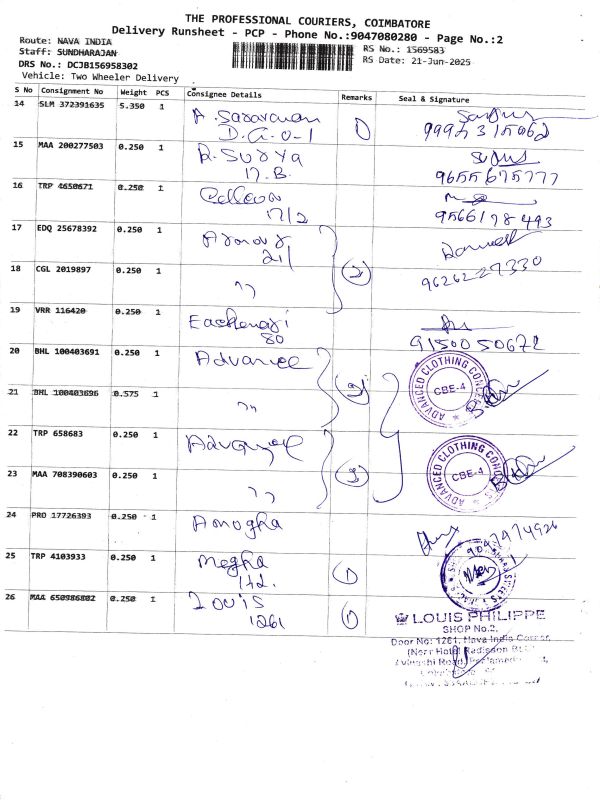 THE PROFESSIONAL COURIERS, COIMBATORE
Delivery Runsheet - PCP - Phone No.:9047080280 - Page No.:2
Route: NAVA INDIA
RS No.: 1569583
Staff: SUNDHARAJAN
RS Date: 21-Jun-2025
DRS No.: DCJB156958302
Vehicle: Two Wheeler Delivery
S No Consignment No Weight PCS Consignee Details Remarks Seal & Signature
14 SLM 372391635 5.350 1 A. Saravanan
D.C.O-1 1
15 MAA 200277503 0.250 1 R. Surya 9655675777
17.B.
16 TRP 4650671 0.250 1
17/2 9566178493
17 EDQ 25678392 0.250 1
21/ 2
18 CGL 2019897 0.250 1 " 9626227330
19 VRR 116420 0.250 1
80 9150050672
20 BHL 100403691 0.250 1 Advance
ADVANCED CLOTHING CBE-4
21 BHL 100403696 0.575 1 "
22 TRP 658683 0.250 1 Advance
ADVANCED CLOTHING CBE-4
23 MAA 708390603 0.250 1 "
24 PRO 17726393 0.250 1 Amogha
25 TRP 4103933 0.250 1 Megha
Ltd. 1
26 MAA 650986802 0.250 1 Louis
1261 1
LOUIS PHILIPPE
SHOP No.2,
Door No: 1261, Nava India Corner,
(Near Hotel Radisson BLU)